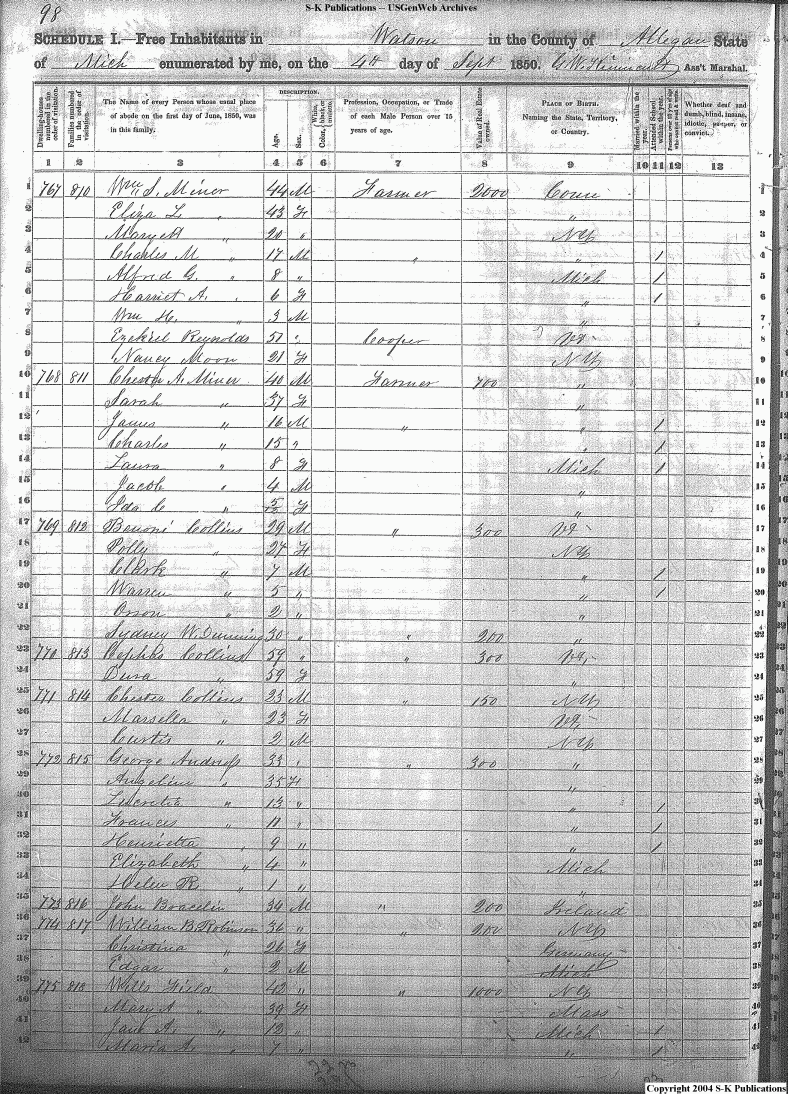 S-K Publications – USGenWeb Archives
98
SCHEDULE I.—Free Inhabitants in Watson in the County of Allegan State
of Mich enumerated by me, on the 4th day of Sept 1850. Ass't Marshal.
Dwelling-houses numbered in the order of visitation.
Families numbered in the order of visitation.
The Name of every Person whose usual place of abode on the first day of June, 1850, was in this family.
DESCRIPTION.
Age.
Sex.
White, black, or mulatto.
Color,
Profession, Occupation, or Trade of each Male Person over 15 years of age.
Value of Real Estate owned.
PLACE OF BIRTH. Naming the State, Territory, or Country.
Married within the year.
Attended School within the year.
Persons over 20 y'rs of age who cannot read & write.
Whether deaf and dumb, blind, insane, idiotic, pauper, or convict.
1 2 3 4 5 6 7 8 9 10 11 12 13
1 767 810 Wm S. Miner 44 M Farmer 2000 Conn 1
2 Eliza L. " 43 F " 2
3 Mary " 20 " NY 3
4 Charles M. " 17 M " " 1 4
5 Alfred G. " 8 " Mich 1 5
6 Harriet A. " 6 F " 1 6
7 Wm H. " 3 M " 7
8 Ezekiel Reynolds 51 " Cooper Vt 8
9 Nancy Moon 21 F NY 9
10 768 811 Chester A. Miner 40 M Farmer 700 " 10
11 Sarah " 37 F " 11
12 James " 16 M " " 1 12
13 Charles " 15 " " 1 13
14 Laura " 8 F Mich 1 14
15 Jacob " 4 M " 15
16 Ida C " 5/12 F " 16
17 769 812 Benoni Collins 29 M " 300 Vt 17
18 Polly " 27 F NY 18
19 Clark " 7 M " 1 19
20 Warren " 5 " " 1 20
21 Orson " 2 " " 21
22 Sydney W. Dunning 30 " " 200 " 22
23 770 813 Cephas Collins 59 " " 300 Vt 23
24 " 59 F " 24
25 771 814 Chester Collins 23 M " 150 NY 25
26 Marsella " 23 F Vt 26
27 Curtis " 2 M NY 27
28 772 815 George 33 " " 300 " 28
29 Angeline " 35 F " 29
30 Lucretia " 13 " " 1 30
31 Frances " 11 " " 1 31
32 Henrietta " 9 " " 1 32
33 Elizabeth " 4 " Mich 33
34 Helen R " 1 " " 34
35 773 816 John 34 M " 200 Ireland 35
36 774 817 William B. Robinson 36 " " 200 NY 36
37 Christina " 26 F Germany 37
38 Edgar " 2 M Mich 38
39 775 818 Wills Field 42 " " 1000 NY 39
40 Mary A " 39 F Mass 40
41 Jane A. " 12 " Mich 1 41
42 Maria A. " 7 " " 1 42
Copyright 2004 S-K Publications